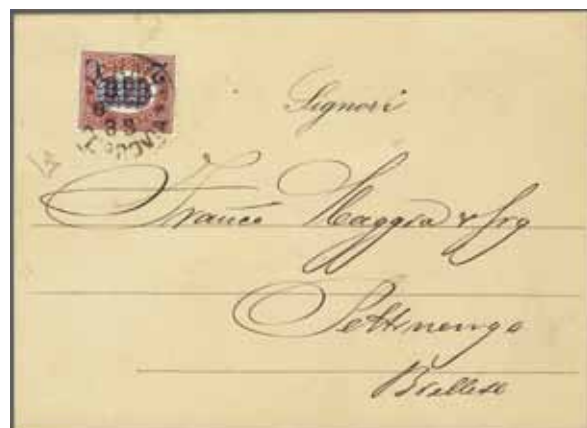 Signori
Franco Maggia &
Settimengo
Biellese